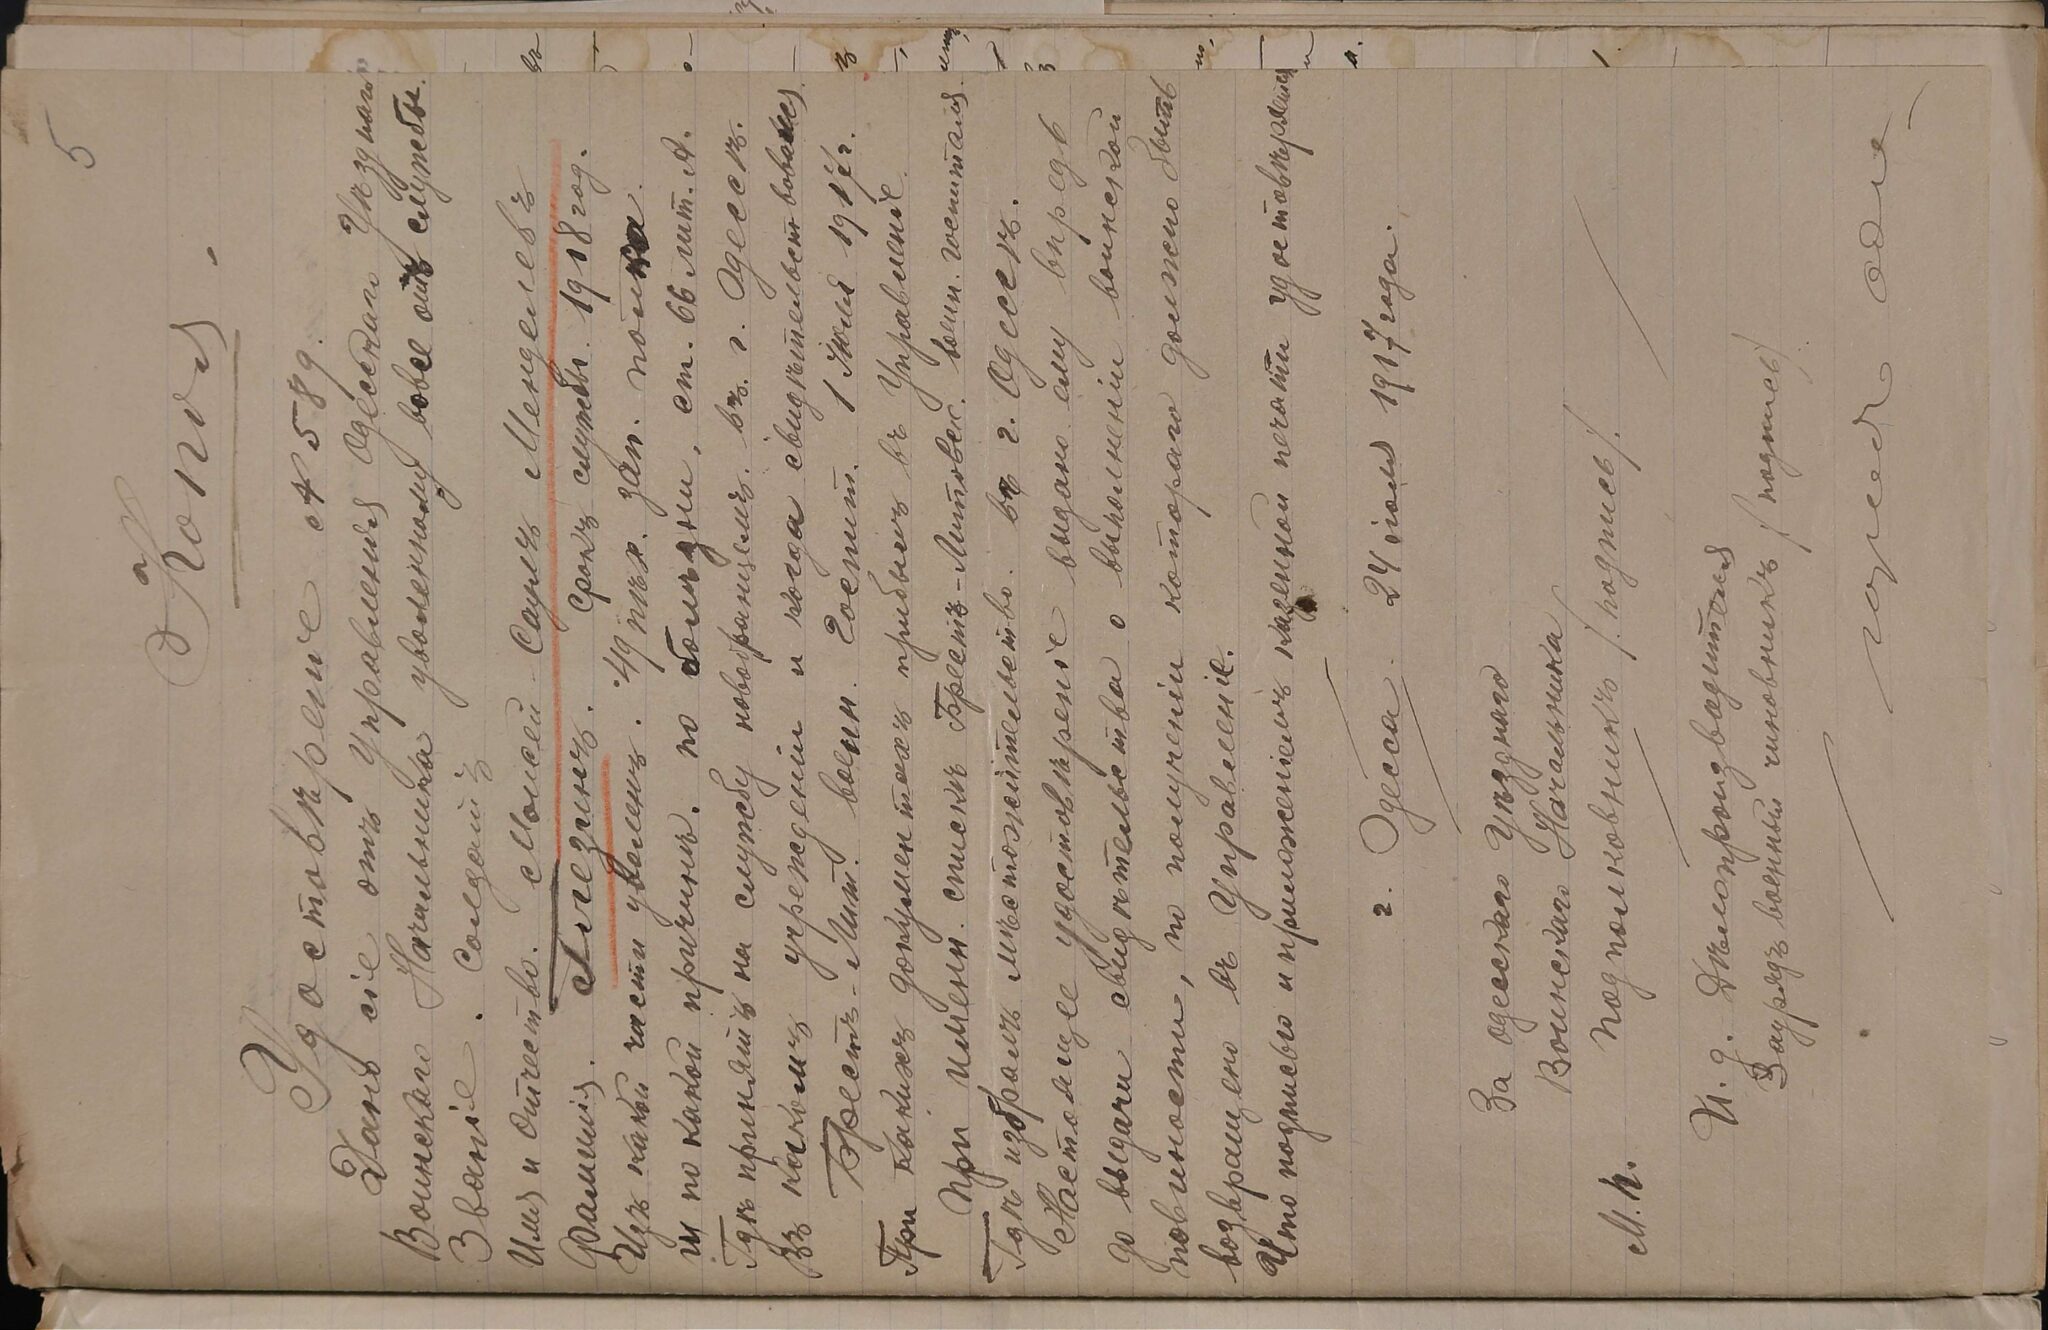 5
Копія.
Удостовѣреніе № 589.
Дано сіе отъ Управленія Одесскаго Уѣзднаго
Воинскаго Начальника уволенному вовсе отъ службы.
Званіе. Солдатъ
Имя и отчество. Моисей-Сауль Менделевъ
Фамилія. Глезинъ. Срокъ службы. 1918 год.
Изъ какой части уволенъ. 49 пѣх. зап. полка.
и по какой причинѣ. по болѣзни. ст. 66 лит. А.
Гдѣ принятъ на службу новобранцемъ. въ г. Одессѣ.
Въ какомъ учрежденіи и когда свидѣтельствовался
Брестъ-Лит. воен. Госпит. 1 Іюля 1917 г.
При какихъ документахъ прибылъ въ Управленіе.
При Имен. спискѣ Брестъ-Литовск. воен. госпиталя
Гдѣ избралъ мѣстожительство. въ г. Одессѣ.
Настоящее удостовѣреніе выдано ему впредь
до выдачи свидѣтельства о выполненіи воинской
повинности, по полученіи котораго должно быть
возвращено въ Управленіе.
Что подписью и приложеніемъ казенной печати удостовѣряется
г. Одесса. 24 іюля 1917 года.
За Одесскаго Уѣзднаго
Воинскаго Начальника
М.П. Подполковникъ /подпись/.
И. д. Дѣлопроизводителя
Заурядъ военный чиновникъ /подпись/